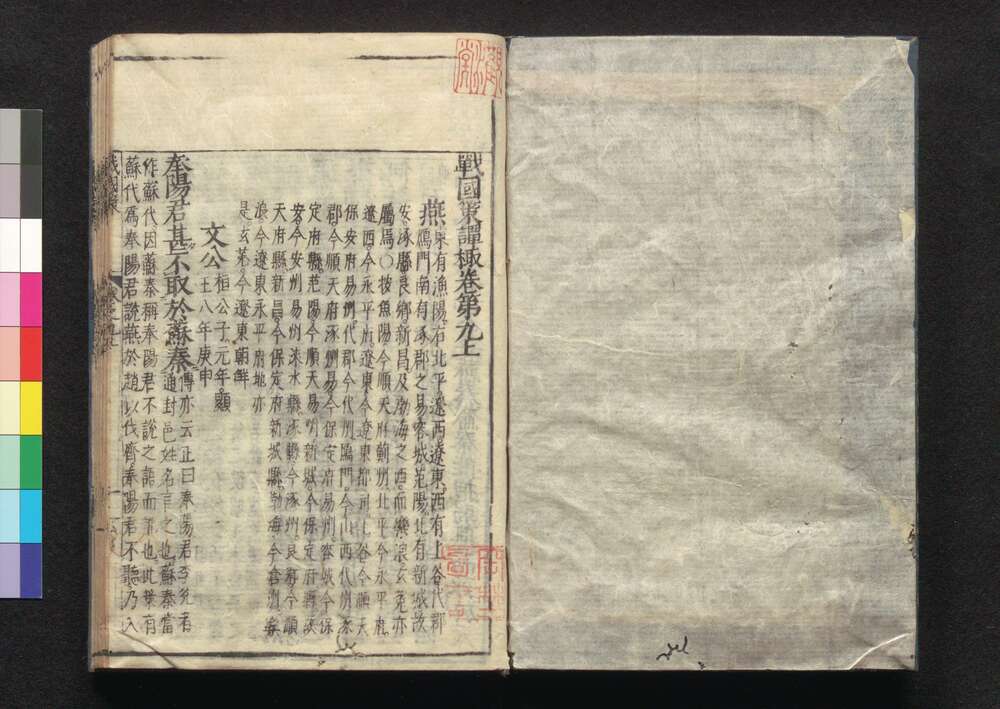 戰國策譚棷卷第九上
燕東有漁陽右北平遼西遼東西有上谷代郡
鴈門南有涿郡之易容城范陽北有新城故
安涿縣良鄉新昌及渤海之西而樂浪玄菟亦
屬焉○按魚陽今順天府薊州北平今永平府
遼西今永平府遼東今遼東都司上谷今順天
保安府易州代郡今代州鴈門今山西代州涿
郡今順天府涿州易今保定府易州容城今保
定府縣范陽今順天易州新城今保定府縣故
安今安州易州淶水縣涿縣今涿州良鄉今順
天府縣新昌今保定府新城縣渤海今倉州樂
浪今遼東永平府地亦
是玄菟今遼東朝鮮
文公桓公子元年顯
王八年庚申
奉陽君甚不取於蘇秦傳亦云正曰奉陽君李兌者
通封邑姓名言之也蘇秦當
作蘇代因蘇秦稱奉陽君不說之語而訛也此策有
蘇代爲奉陽君說燕於趙以伐齊奉陽君不聽乃入
戰國策
卷之九上